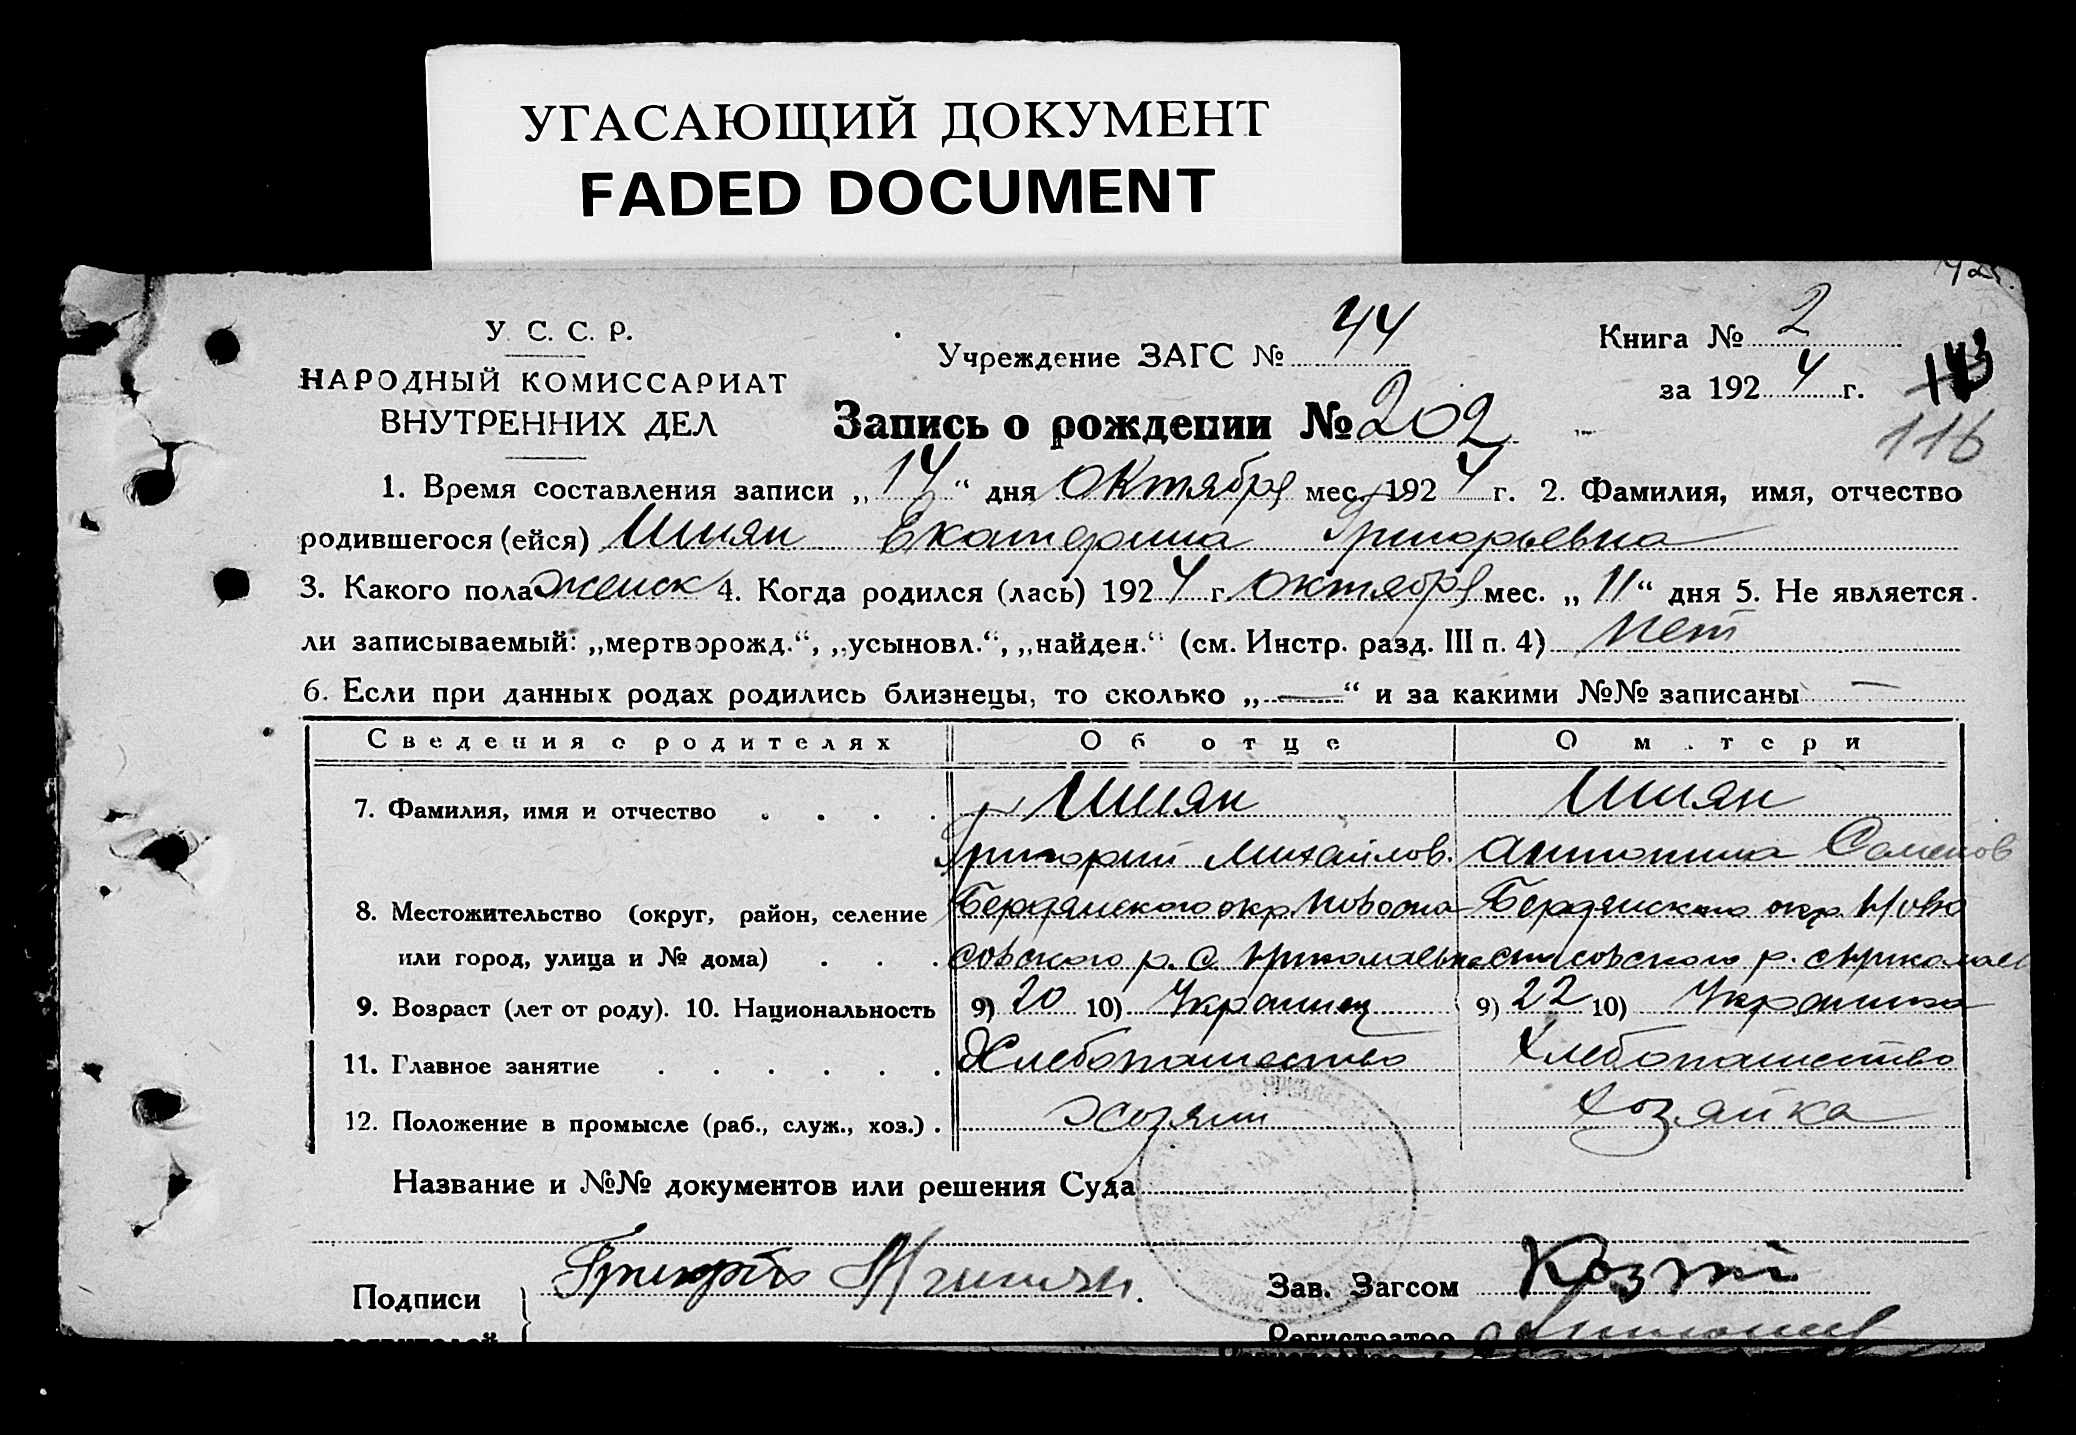 УГАСАЮЩИЙ ДОКУМЕНТ
FADED DOCUMENT
У. С. С. Р.
НАРОДНЫЙ КОМИССАРИАТ
ВНУТРЕННИХ ДЕЛ
Учреждение ЗАГС № 44
Книга № 2
за 1924 г.
113
116
Запись о рождении № 202
1. Время составления записи „14“ дня Октября мес. 1924 г. 2. Фамилия, имя, отчество
родившегося (ейся) Шиян Екатерина Григорьевна
3. Какого пола женск 4. Когда родился (лась) 1924 г. октября мес. „11“ дня 5. Не является
ли записываемый: „мертворожд.“, „усыновл.“, „найден.“ (см. Инстр. разд. III п. 4) Нет
6. Если при данных родах родились близнецы, то сколько „—“ и за какими №№ записаны —
Сведения о родителях Об отце О матери
7. Фамилия, имя и отчество Шиян Шиян
Григорий Михайлов. Антонина Семенов
8. Местожительство (округ, район, селение Бердянского окр. Новоспа Бердянского окр. Ново
или город, улица и № дома) совского р. с. Николаевка спасовского р. с Николаев
9. Возраст (лет от роду). 10. Национальность 9) 20 10) Украинец 9) 22 10) Украинка
11. Главное занятие Хлебопашество Хлебопашество
12. Положение в промысле (раб., служ., хоз.) Хозяин Хозяйка
Название и №№ документов или решения Суда
Подписи Григорій Шиян.
Зав. Загсом
заявителей
Регистратор